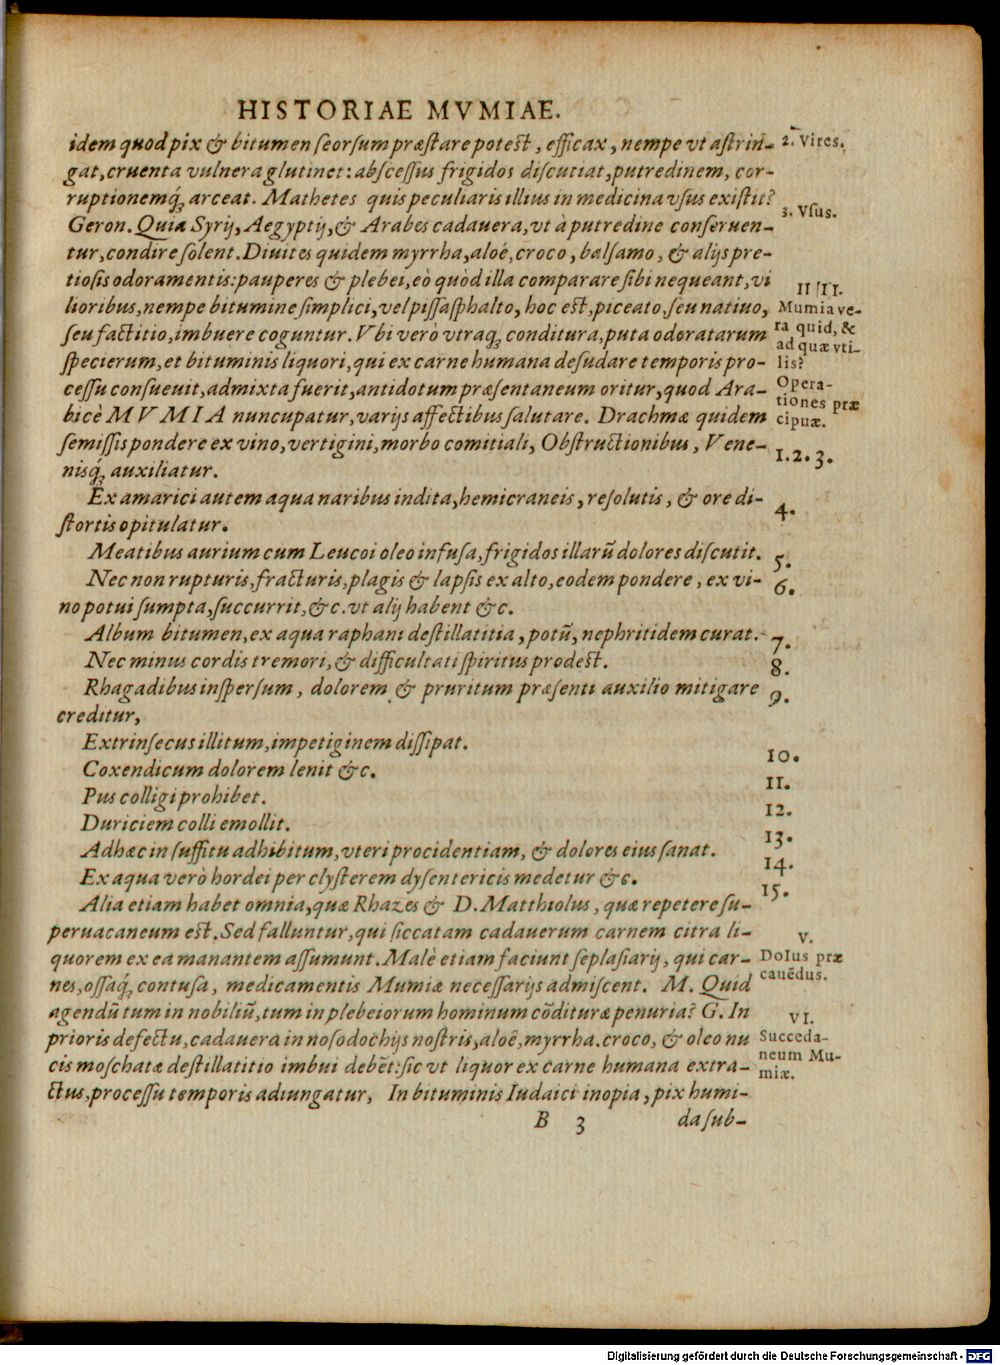 HISTORIAE MVMIAE.
idem quod pix & bitumen ſeorſum præſtare poteſt, efficax, nempe vt aſtrin- 2. Vires.
gat, cruenta vulnera glutinet: abſceſſus frigidos diſcutiat, putredinem, cor-
ruptionemq́ꝫ arceat. Mathetes quis peculiaris illius in medicina vſus exiſtit?
3. Vſus.
Geron. Quia Syrij, Aegyptij, & Arabes cadauera, vt à putredine conſeruen-
tur, condire ſolent. Diuites quidem myrrha, aloé, croco, balſamo, & alijs pre-
tioſis odoramentis: pauperes & plebei, eò quòd illa comparare ſibi nequeant, vi
IIII.
lioribus, nempe bitumine ſimplici, vel piſſaſphalto, hoc eſt, piceato, ſeu natiuo, Mumia ve-
ſeu factitio, imbuere coguntur. Vbi verò vtraqꝫ conditura, puta odoratarum ra quid, &
ad quæ vti-
ſpecierum, et bituminis liquori, qui ex carne humana deſudare temporis pro- lis?
ceſſu conſueuit, admixta fuerit, antidotum præſentaneum oritur, quod Ara- Opera-
tiones præ
bicè MVMIA nuncupatur, varijs affectibus ſalutare. Drachmæ quidem cipuæ.
ſemiſſis pondere ex vino, vertigini, morbo comitiali, Obſtructionibus, Vene- 1. 2. 3.
nisq́ꝫ auxiliatur.
Ex amarici autem aqua naribus indita, hemicraneis, reſolutis, & ore di- 4.
ſtortis opitulatur.
Meatibus aurium cum Leucoi oleo infuſa, frigidos illarũ dolores diſcutit. 5.
Nec non rupturis, fracturis, plagis & lapſis ex alto, eodem pondere, ex vi- 6.
no potui ſumpta, ſuccurrit, &c. vt alij habent &c.
Album bitumen, ex aqua raphani deſtillatitia, potũ, nephritidem curat. 7.
Nec minus cordis tremori, & difficultati ſpiritus prodeſt. 8.
Rhagadibus inſperſum, dolorem & pruritum præſenti auxilio mitigare 9.
creditur,
Extrinſecus illitum, impetiginem diſſipat. 10.
Coxendicum dolorem lenit &c. 11.
Pus colligi prohibet. 12.
Duriciem colli emollit. 13.
Adhæc in ſuffitu adhibitum, vteri procidentiam, & dolores eius ſanat. 14.
Ex aqua verò hordei per clyſterem dyſentericis medetur &c. 15.
Alia etiam habet omnia, quæ Rhazes & D. Matthiolus, quæ repetere ſu-
peruacaneum eſt. Sed falluntur, qui ſiccatam cadauerum carnem citra li- V.
quorem ex ea manantem aſſumunt. Malè etiam faciunt ſeplaſiarij, qui car- Dolus præ
cauẽdus.
nes, oſſaq́ꝫ contuſa, medicamentis Mumiæ neceſſarijs admiſcent. M. Quid
agendũ tum in nobiliũ, tum in plebeiorum hominum cõdituræ penuria? G. In VI.
prioris defectu, cadauera in noſodochijs noſtris, aloë, myrrha. croco, & oleo nu Succeda-
neum Mu-
cis moſchatæ deſtillatitio imbui debẽt: ſic vt liquor ex carne humana extra- miæ.
ctus, proceſſu temporis adiungatur, In bituminis Iudaici inopia, pix humi-
B 3 da ſub-
Digitalisierung gefördert durch die Deutsche Forschungsgemeinschaft - DFG